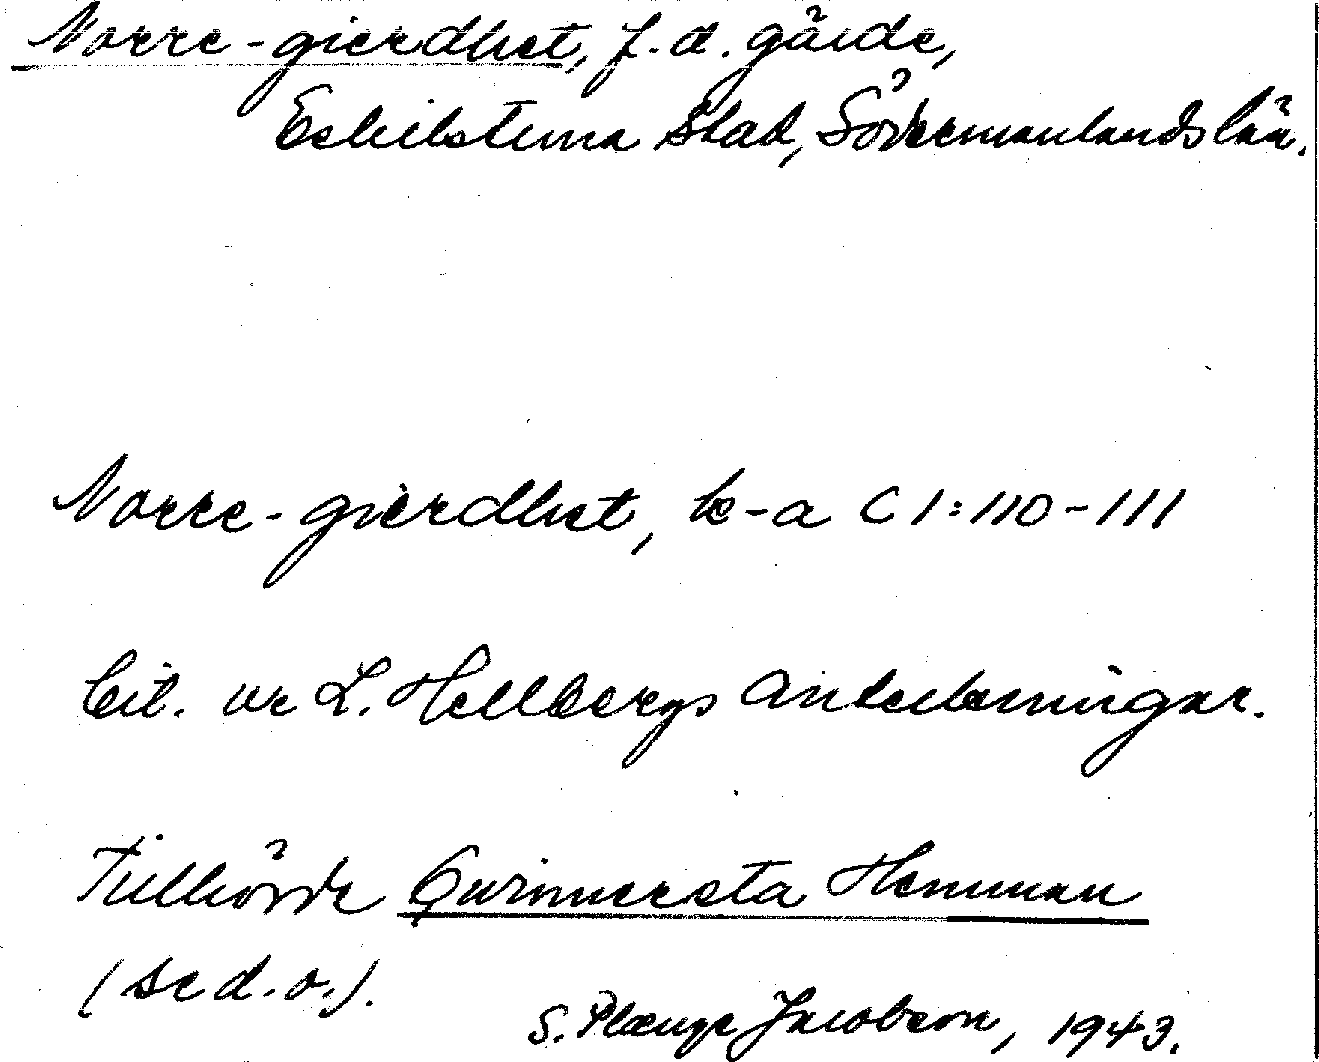 Norre-gierdhet, f.d. gärde,
Eskilstuna stad, Södermanlands län.
Norre-gierdhet, k-a C 1:110-111
Cit. ur L. Hellbergs anteckningar.
Tillhörde Qwinnersta Hemman
(se d.o.).
S. Plænge Jacobson, 1943.